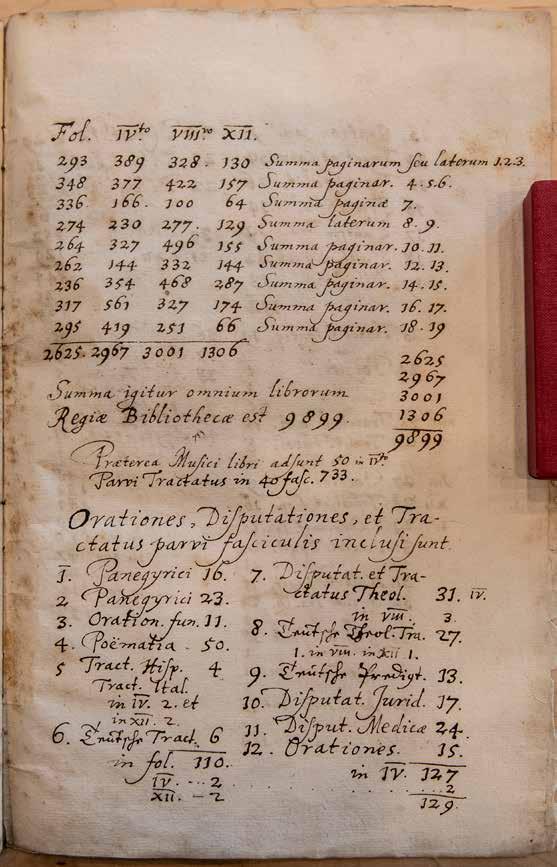 Fol. IV.to VIII.vo XII.
293 389 328. 130 Summa paginarum seu laterum 1.2.3.
348 377 422 157 Summa paginar. 4.5.6.
336 166. 100 64 Summa paginæ 7.
274 230 277. 129 Summa laterum 8. 9.
264 327 496 155 Summa paginar. 10.11.
262 144 332 144 Summa paginar. 12.13.
236 354 468 287 Summa paginar. 14.15.
317 561 327 174 Summa paginar. 16.17.
295 419 251 66 Summa paginar. 18.19
2625. 2967 3001 1306
2625
2967
3001
1306
9899
Summa igitur omnium librorum
Regiæ Bibliothecæ est 9899.
Præterea Musici libri adsunt 50 in IV.to
Parvi Tractatus in 40 fasc. 733.
Orationes, Disputationes, et Tra-
ctatus parvi fasciculis inclusi sunt.
1. Panegyrici 16.
2 Panegyrici 23.
3. Oration. fun. 11.
4. Poëmatia. 50.
5 Tract. Hisp. 4
Tract. Ital.
in IV. 2. et
in XII. 2.
6. Teütsche Tract. 6
in fol. 110.
IV. -- 2
XII. - 2
7. Disputat. et Tra-
ctatus Theol. 31. IV.
in VIII. 3.
8. Teütsche Theol. Tra. 27.
1. in VIII. in XII 1.
9. Teütsche Predigt. 13.
10. Disputat. Jurid. 17.
11. Disput. Medicæ 24.
12. Orationes. 15.
in IV. 127
. . . . . . . . 2
129.